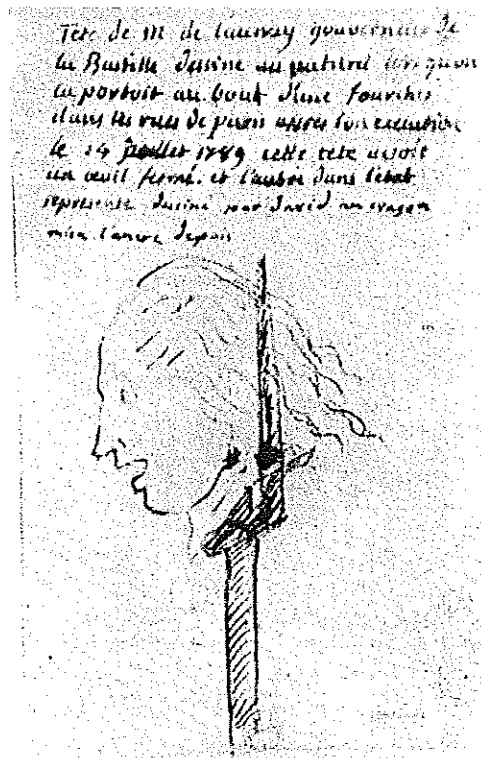 Tete de m de launay gouverneur de
la Bastille dessiné au naturel lorsquon
la portoit au bout d'une fourche
dans les rues de paris après son execution
le 14 Juillet 1789 cette tete avoit
un oeuil fermé. et l'autre dans l'etat
representé dessiné par david au crayon
mis a l'encre depuis